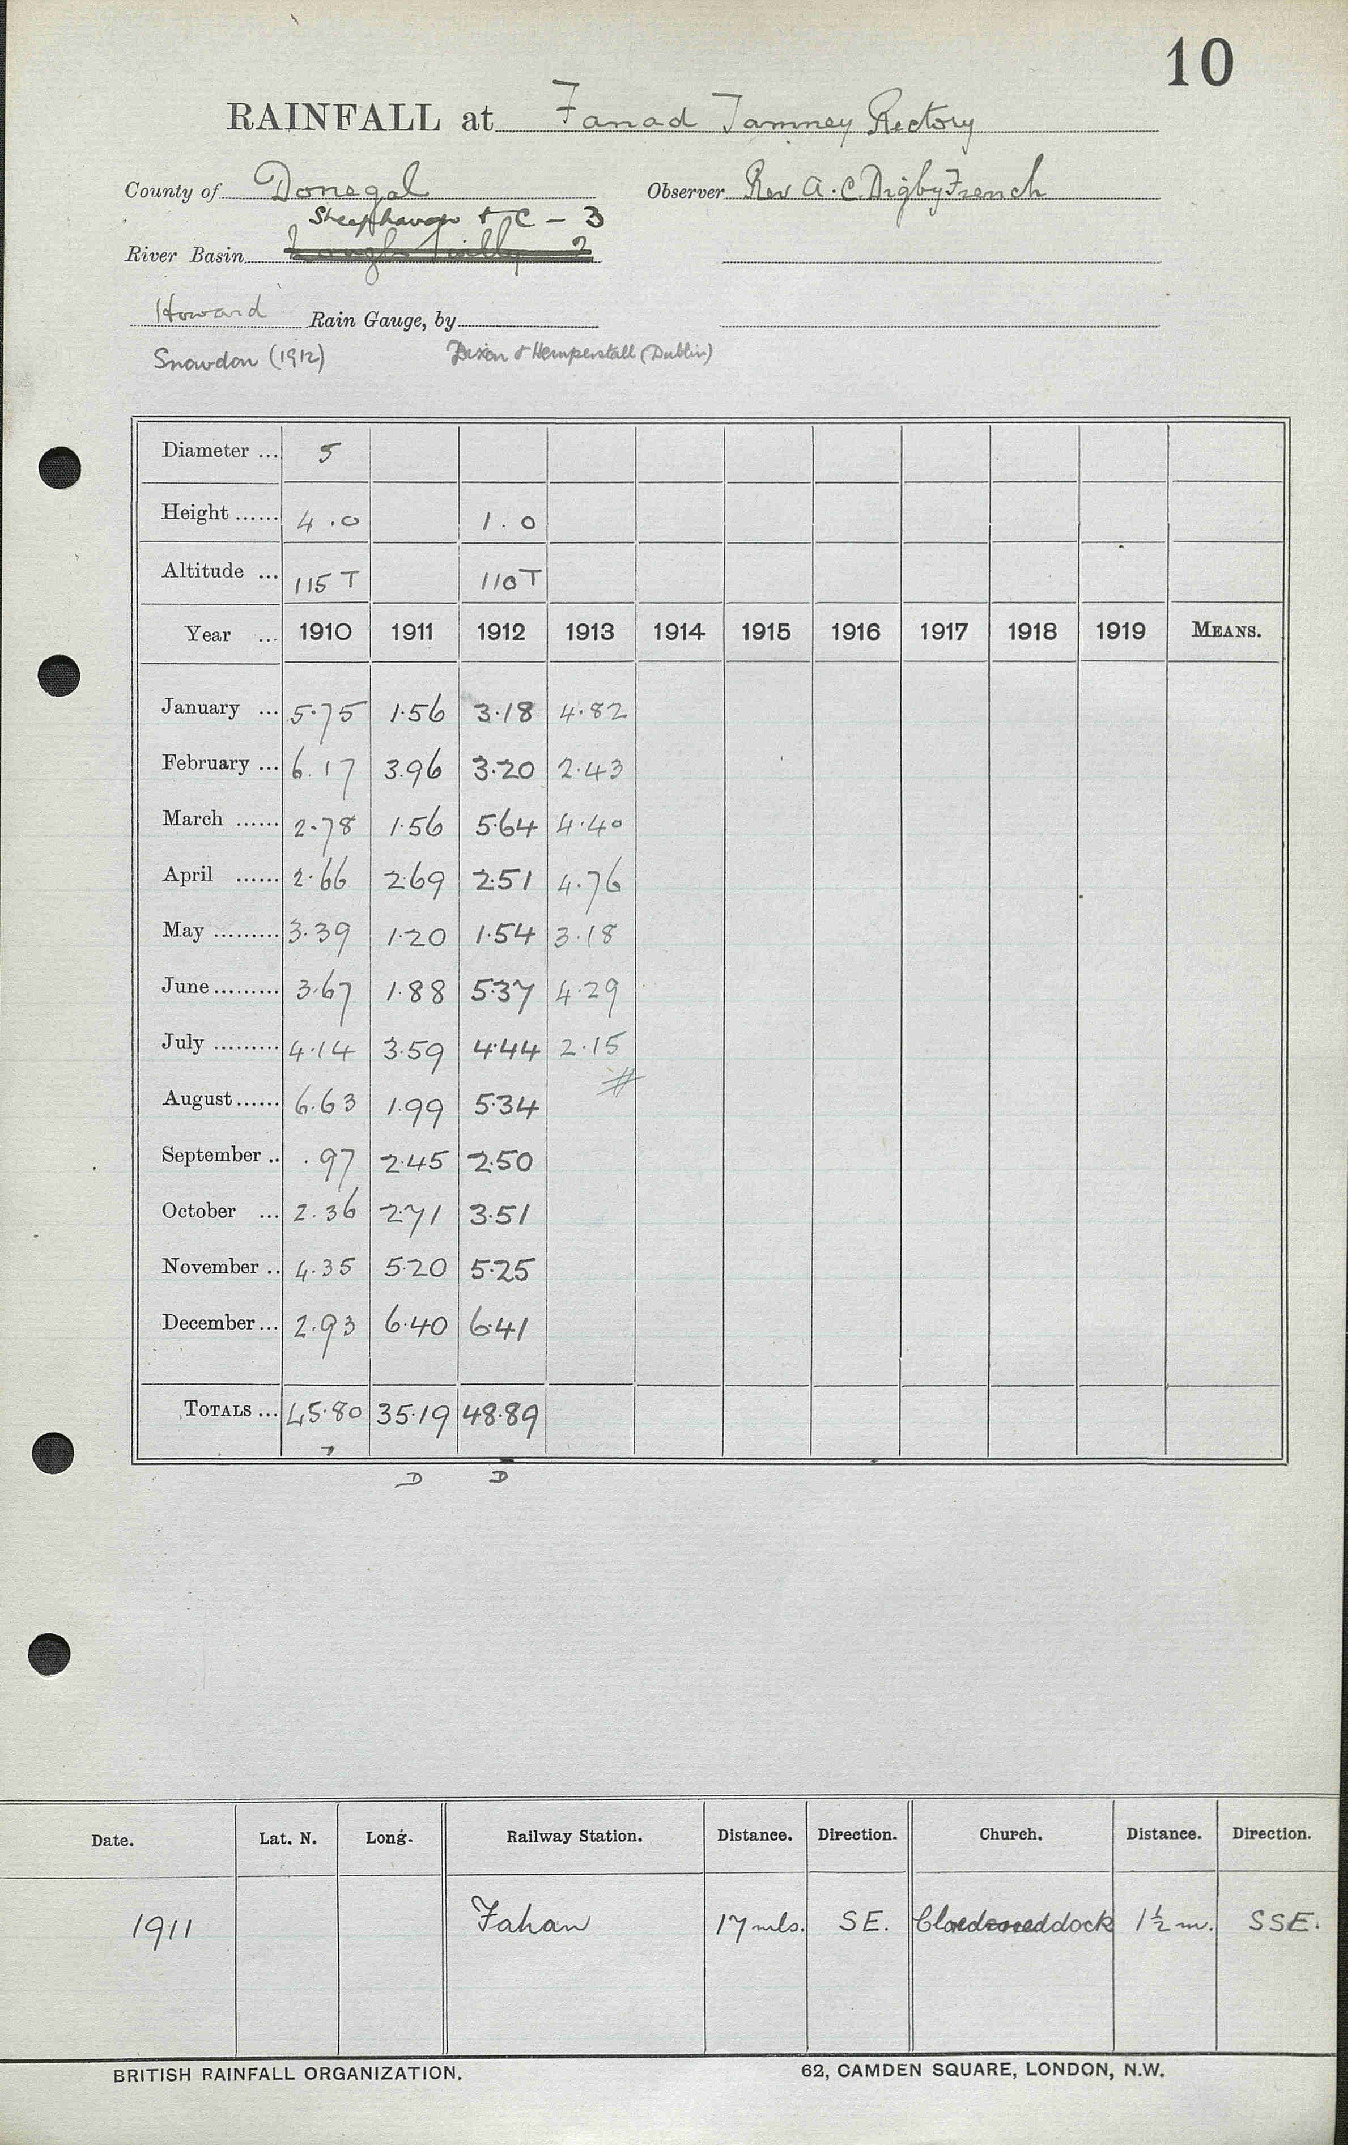 10
RAINFALL at Fanad Tamney Rectory
County of Donegal Observer Rev A. C. Digby French
Sheephaven & C - 3
River Basin Lough Swilly 2
Howard Rain Gauge, by
Snowdon (1912) Dixon & Hempenstall (Dublin)
Diameter ... 5
Height ...... 4.0 1.0
Altitude ... 115 T 110T
Year ... 1910 1911 1912 1913 1914 1915 1916 1917 1918 1919 MEANS.
January ... 5.75 1.56 3.18 4.82
February ... 6.17 3.96 3.20 2.43
March ...... 2.78 1.56 5.64 4.40
April ...... 2.66 2.69 2.51 4.76
May ......... 3.39 1.20 1.54 3.18
June ......... 3.67 1.88 5.37 4.29
July ......... 4.14 3.59 4.44 2.15
#
August ...... 6.63 1.99 5.34
September .. .97 2.45 2.50
October ... 2.36 2.71 3.51
November .. 4.35 5.20 5.25
December ... 2.93 6.40 6.41
TOTALS ... 45.80 35.19 48.89
D D
Date. Lat. N. Long. Railway Station. Distance. Direction. Church. Distance. Direction.
1911 Fahan 17 mls. SE. 1½ m. SSE.
BRITISH RAINFALL ORGANIZATION. 62, CAMDEN SQUARE, LONDON, N.W.